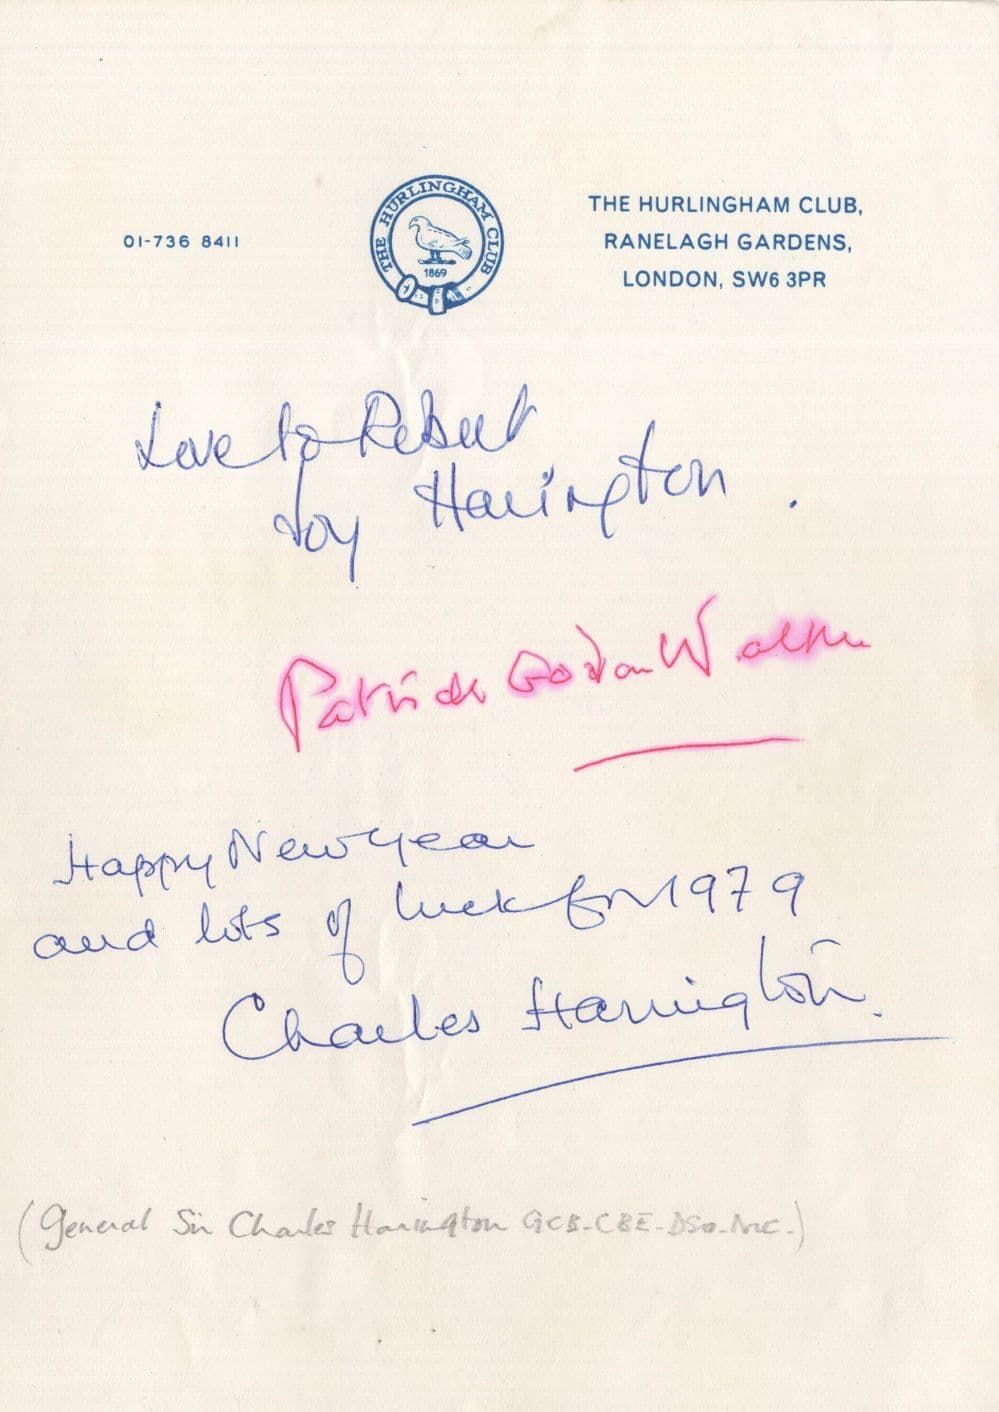 01-736 8411
THE HURLINGHAM CLUB
1869
THE HURLINGHAM CLUB,
RANELAGH GARDENS,
LONDON, SW6 3PR
Love to Robert
Joy Harington.
Patrick Gordon Walker
Happy New Year
and lots of luck for 1979
Charles Harington.
(General Sir Charles Harington GCB-CBE-DSO-MC-)